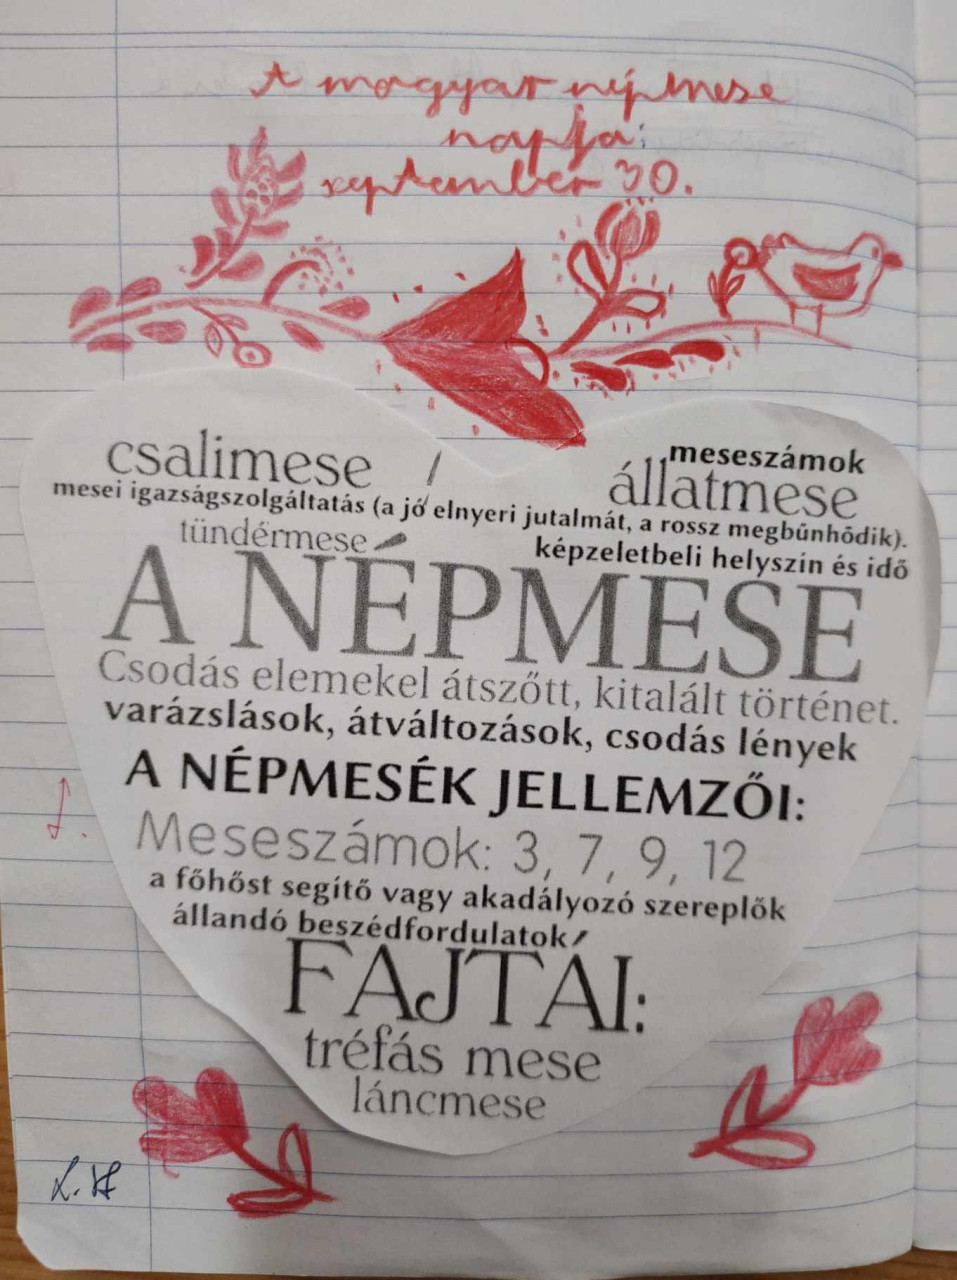 A magyar népmese
napja:
september 30.
csalimese
meseszámok
állatmese
mesei igazságszolgáltatás (a jó elnyeri jutalmát, a rossz megbűnhődik).
tündérmese
képzeletbeli helyszín és idő
A NÉPMESE
Csodás elemekel átszőtt, kitalált történet.
varázslások, átváltozások, csodás lények
A NÉPMESÉK JELLEMZŐI:
Meseszámok: 3, 7, 9, 12
a főhőst segítő vagy akadályozó szereplők
állandó beszédfordulatok
FAJTÁI:
tréfás mese
láncmese
L. H